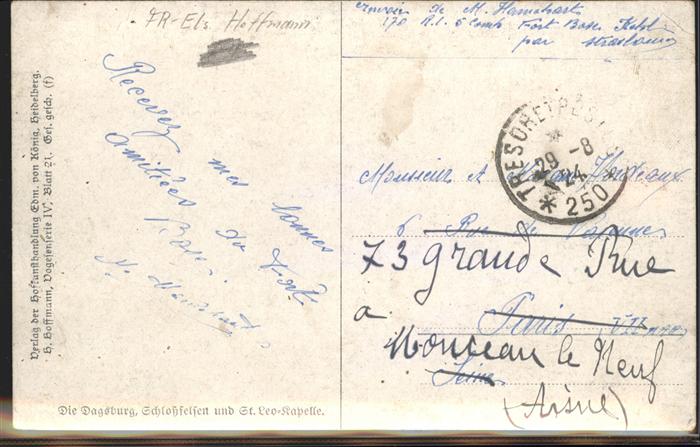 FR-Els. Hoffmann
Verlag der Hofkunsthandlung Edm. von König, Heidelberg.
H. Hoffmann, Vogesenserie IV, Blatt 21. Ges. gesch. (f)
Recevez mes bonnes
amitiées du Fort
Bose.
Die Dagsburg, Schloßfelsen und St. Leo-Kapelle.
de M.
170 R.I. 6 Comp Fort Bose Kehl
par Strasbourg
TRESOR ET POSTES
29 - 8
24
* 250 *
Monsieur et
6 Rue de
73 grande Rue
Paris VII
a
Monceau le Neuf
Seine
(Aisne)